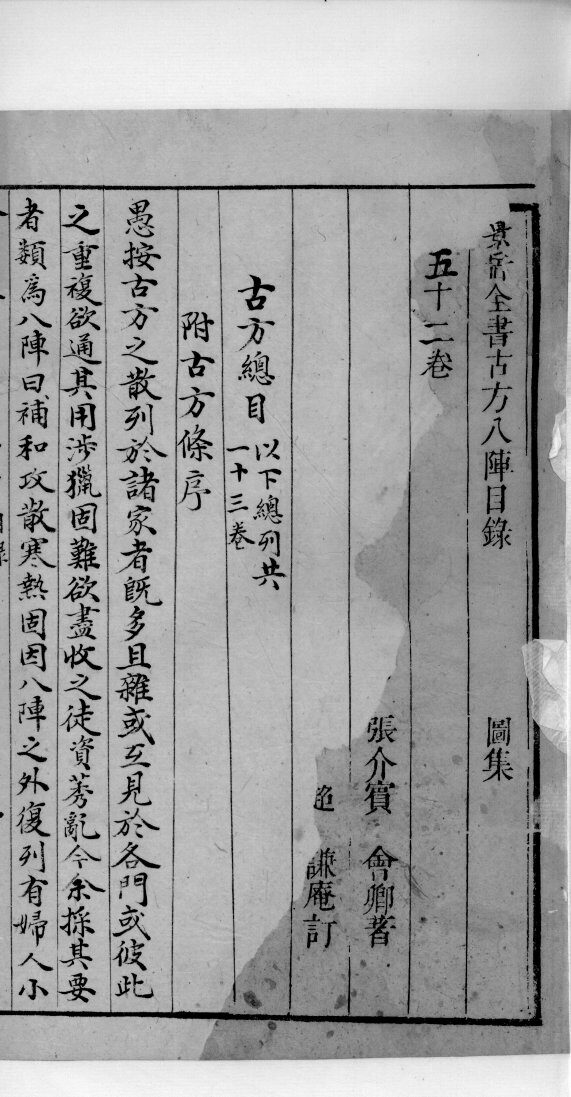 景岳全書古方八陣目錄 圖集
五十二卷
張介賓 會卿著
謙庵訂
古方總目 以下總列共
一十三卷
附古方條序
愚按古方之散列於諸家者既多且雜或互見於各門或彼此
之重複欲通其用涉獵固難欲盡收之徒資莠亂今余採其要
者類為八陣曰補和攻散寒熱固因八陣之外復列有婦人小